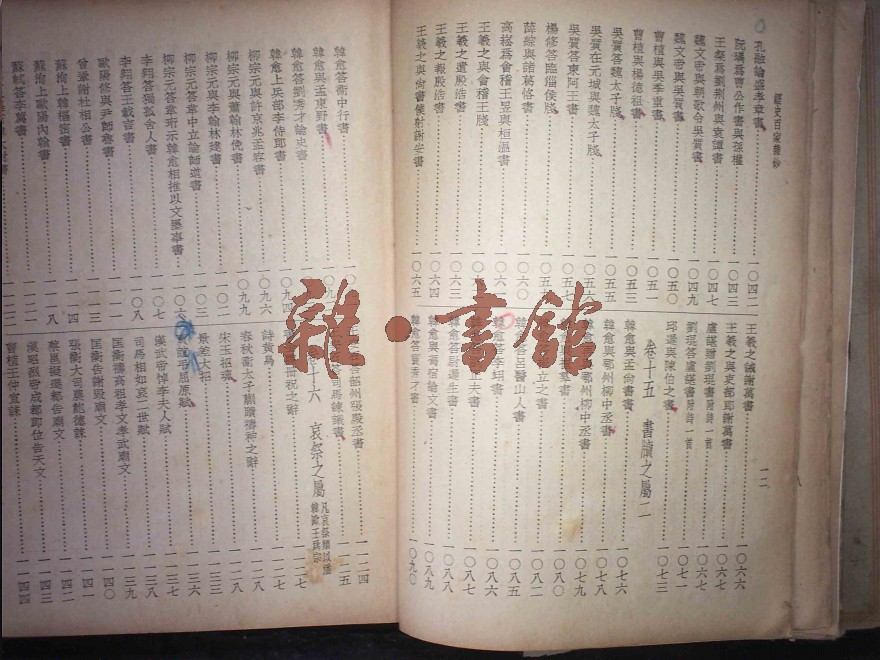 經史百家雜鈔
一二
孔融論盛孝章書……一〇四二
阮瑀爲曹公作書與孫權……一〇四三
王粲爲劉荊州與袁譚書……一〇四七
魏文帝與朝歌令吳質書……一〇四九
魏文帝與吳質書……一〇五〇
曹植與吳季重書……一〇五一
曹植與楊德祖書……一〇五三
吳質答魏太子牋……一〇五五
吳質在元城與魏太子牋……一〇五六
吳質答東阿王書……一〇五七
楊修答臨淄侯牋……一〇五九
薛綜與諸葛恪書……一〇六〇
高崧爲會稽王昱與桓溫書
王羲之與會稽王牋……一〇六
王羲之遺殷浩書……一〇六三
王羲之報殷浩書……一〇六四
王羲之與尙書僕射謝安書……一〇六五
王羲之誡謝萬書……一〇六六
王羲之與吏部郎謝萬書……一〇六六
盧諶贈劉琨書附詩一首……一〇六七
劉琨答盧諶書附詩一首……一〇七一
邱遲與陳伯之書
卷十五 書牘之屬二
韓愈與孟尙書書……一〇七六
韓愈與鄂州柳中丞書……一〇七八
韓愈與鄂州柳中丞書……一〇八〇
立之書……一〇八二
韓愈答呂毉山人書……一〇八五
韓愈答李翊書……一〇八六
夫書……一〇八七
韓愈答尉遲生書……一〇八八
韓愈與馮宿論文書……一〇八九
韓愈答竇秀才書……一〇九〇
韓愈答衞中行書
韓愈與孟東野書
韓愈答劉秀才論史書
韓愈上兵部李侍郎書……一〇九四
柳宗元與許京兆孟容書……一〇九六
柳宗元與蕭翰林俛書……一〇九九
柳宗元與李翰林建書……一一〇一
柳宗元答韋中立論師道書……一一〇三
柳宗元答韋珩示韓愈相推以文墨事書……一一〇六
李翺答獨孤舍人書……一一〇七
李翺答王載言書……一一〇八
歐陽修與尹師魯書……一一一一
曾鞏謝杜相公書……一一一三
蘇洵上韓樞密書
蘇洵上歐陽內翰書……一一一八
蘇軾答李廌書
韶州張殿丞書……一一二四
答司馬諫議書……一一二五
卷十六 哀祭之屬
册祝之辭……一一二七
詩黃鳥……一一二七
春秋衞太子蒯聵禱神之辭……一一二七
宋玉招魂……一一二八
景差大招……一一三三
賈誼弔屈原賦……一一三六
漢武帝悼李夫人賦……一一三七
司馬相如哀二世賦……一一三八
匡衡禱高祖孝文孝武廟文……一一三九
匡衡告謝毀廟文……一一四〇
張衡大司農鮑德誄……一一四一
蔡邕擬遷都告廟文……一一四二
漢昭烈帝成都卽位告天文……一一四三
曹植王仲宣誄……一一四四
雜·書館